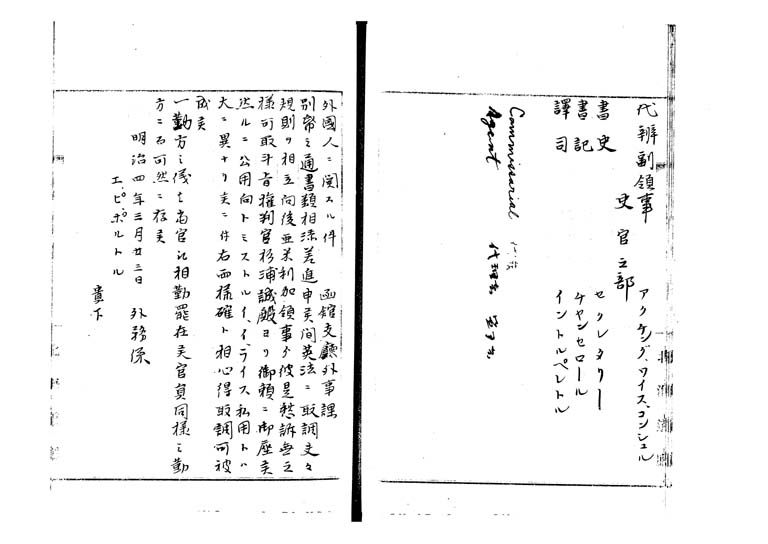 代辨副領事 アクケング、ワイス、コンシュル
史官之部
書史 セクレタリー
書記 チヤンセロール
譯司 イントルペレトル
Commissarial
Agent 代理
外國人ニ関スル件 函館支廳外事課
別帋之通書類相添差進申候間英法ニ取調
規則ヲ相立向後亜米利加領事ゟ彼是愁訴無之
様可取斗旨権判官杉浦誠殿ヨリ御頼ニ御座候
然ルニ公用向トミストルイ、イ、ライス私用トハ
大ニ異ナリ候ニ付右両様確ト相心得取調可被
成候
一勤方之儀も当官ニ相勤罷在候官員同様之勤
方ニ而可然ニ存候
明治四年三月廿三日 外務係
エ、ピ、ポルトル
貴下